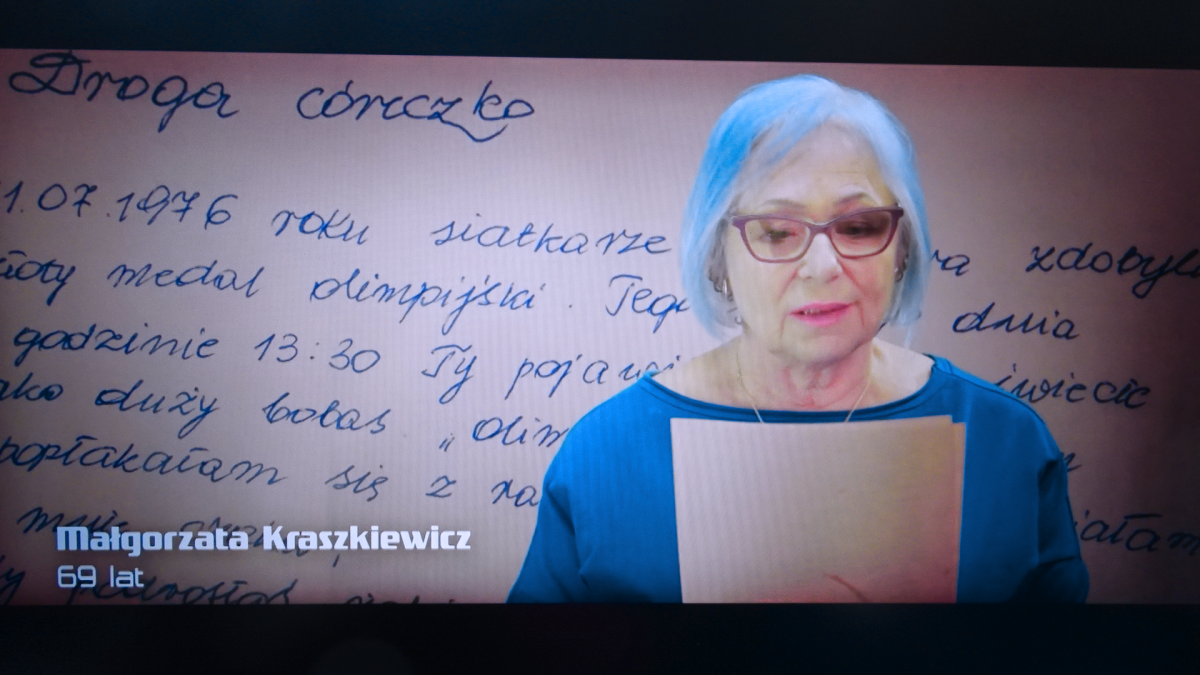 Droga córeczko
1.07.1976 roku siatkarze zdobyli
złoty medal olimpijski. Tego dnia
godzinie 13:30 Ty pojawi świecie
ako duży bobas „olim
popłakałam się z ra
Małgorzata Kraszkiewicz
69 lat